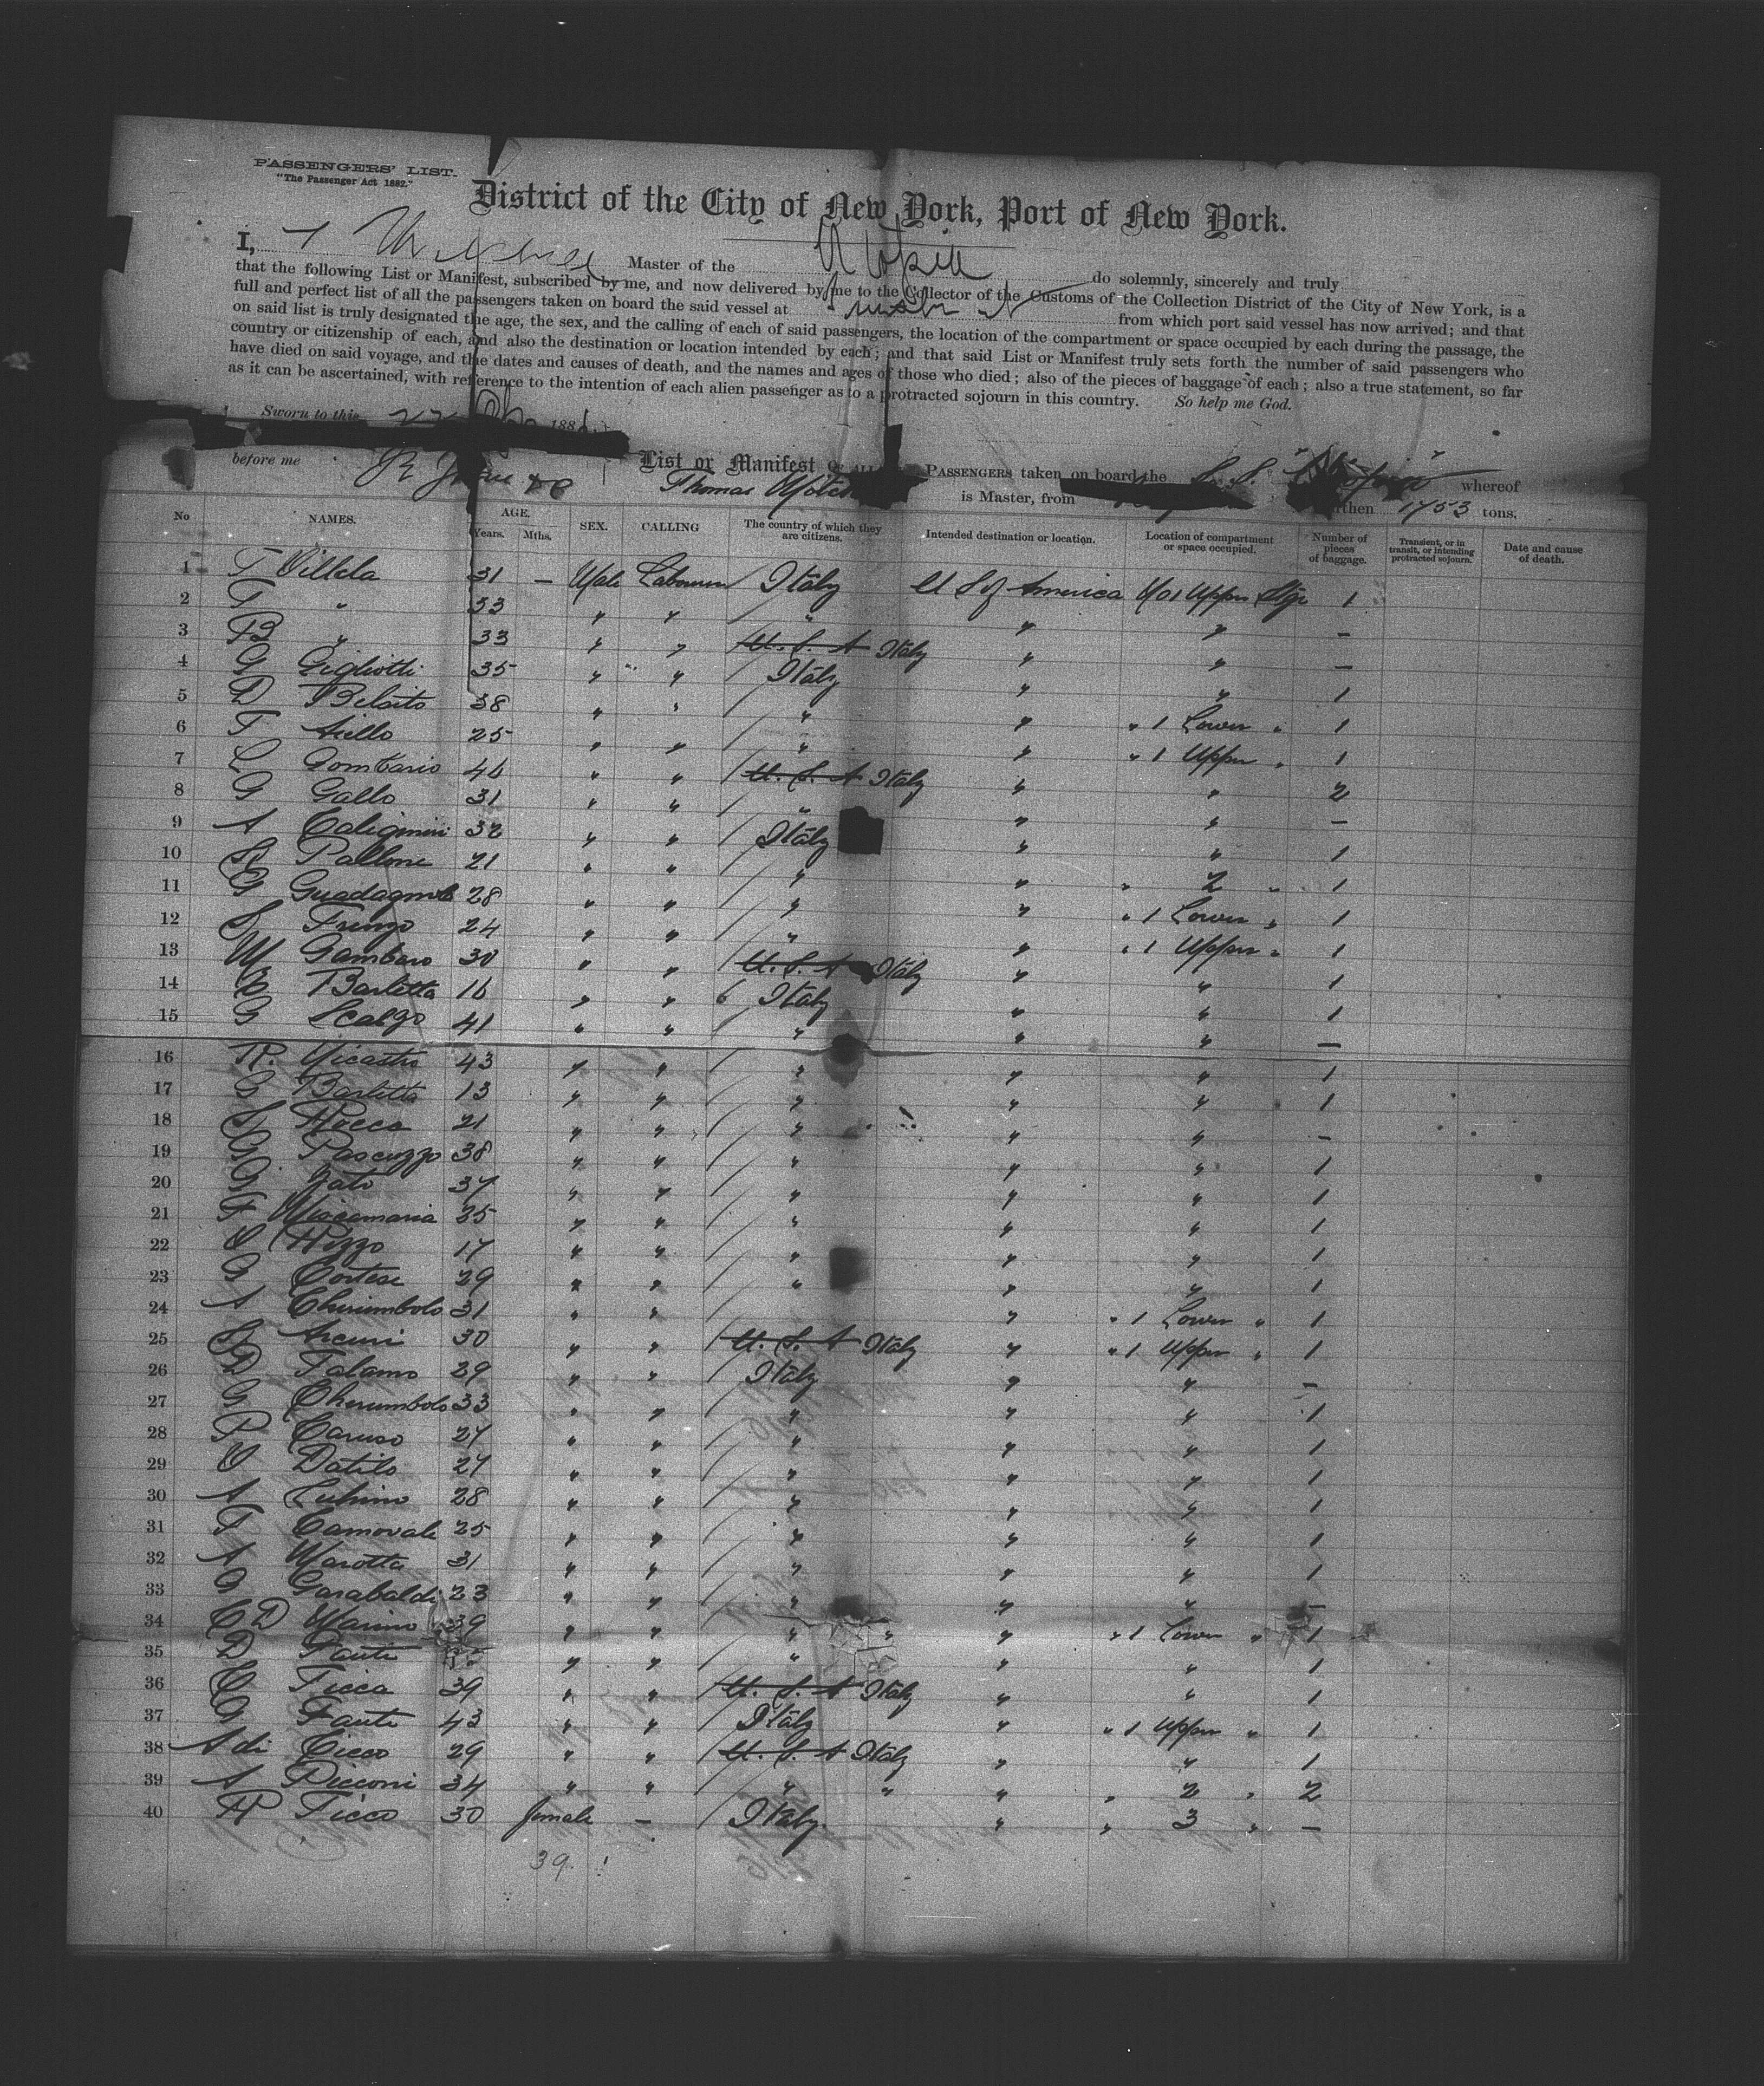 PASSENGERS' LIST.
"The Passenger Act 1882."
District of the City of New York, Port of New York.
I, Master of the Utopia do solemnly, sincerely and truly
that the following List or Manifest, subscribed by me, and now delivered by me to the Collector of the Customs of the Collection District of the City of New York, is a
full and perfect list of all the passengers taken on board the said vessel at from which port said vessel has now arrived; and that
on said list is truly designated the age, the sex, and the calling of each of said passengers, the location of the compartment or space occupied by each during the passage, the
country or citizenship of each, and also the destination or location intended by each; and that said List or Manifest truly sets forth the number of said passengers who
have died on said voyage, and the dates and causes of death, and the names and ages of those who died; also of the pieces of baggage of each; also a true statement, so far
as it can be ascertained, with reference to the intention of each alien passenger as to a protracted sojourn in this country. So help me God.
Sworn to this 188
before me
List or Manifest OF ALL PASSENGERS taken on board the S.S. Utopia whereof
Thomas is Master, from burthen 1753 tons.
No NAMES. AGE. Years. Mths. SEX. CALLING The country of which they are citizens. Intended destination or location. Location of compartment or space occupied. Number of pieces of baggage. Transient, or in transit, or intending protracted sojourn. Date and cause of death.
1 T Villela 31 — Male Labourer Italy U S of America No 1 Upper Stge 1
2 T " 33 " " " " " —
3 B " 33 " " U. S. A Italy " " —
4 G Gigliotti 35 " " Italy " " 1
5 D Belsito 38 " " " " " 1 Lower " 1
6 F Aiello 25 " " " " " 1 Upper " 1
7 L Gombario 46 " " U. S. A Italy " " 2
8 G Gallo 31 " " " " " —
9 A Caligiuri 32 " " Italy " " 1
10 S Pallone 21 " " " " " 2 " 1
11 G Guadagnolo 28 " " " " " 1 Lower " 1
12 S Fringo 24 " " " " " 1 Upper " 1
13 M Gambaro 30 " " U. S. A Italy " " 1
14 C Barletta 16 " " Italy " " 1
15 G Scalzo 41 " " " " " —
16 R. Nicastro 43 " " " " " 1
17 G Barletta 13 " " " " " 1
18 S Rocca 21 " " " " " —
19 G Pascuzzo 38 " " " " " 1
20 G Jato 37 " " " " " 1
21 F Miscemaria 35 " " " " " 1
22 V Rizzo 17 " " " " " 1
23 G Cortese 29 " " " " " 1
24 A Cherumbolo 31 " " " " 1 Lower " 1
25 S Arcuri 30 " " U. S. A Italy " " 1 Upper " 1
26 D Talamo 29 " " Italy " " —
27 G Cherumbolo 33 " " " " " 1
28 P Caruso 27 " " " " " 1
29 V Datilo 27 " " " " " 1
30 A Luhino 28 " " " " " 1
31 F Carnovale 25 " " " " " 1
32 A Marotta 31 " " " " " 1
33 G Garabaldi 23 " " " " " —
34 C D Marino 39 " " " " " " 1 Lower " 1
35 D Fante " " " " " 1
36 C Ticca 39 " " U. S. A Italy " " 1
37 G Fante 43 " " Italy " " 1 Upper " 1
38 A di Cicco 29 " " U. S. A Italy " " 1
39 A Picconi 34 " " " " " " 2 " 2
40 R Ticco 30 female — Italy. " " 3 " —
39. 1